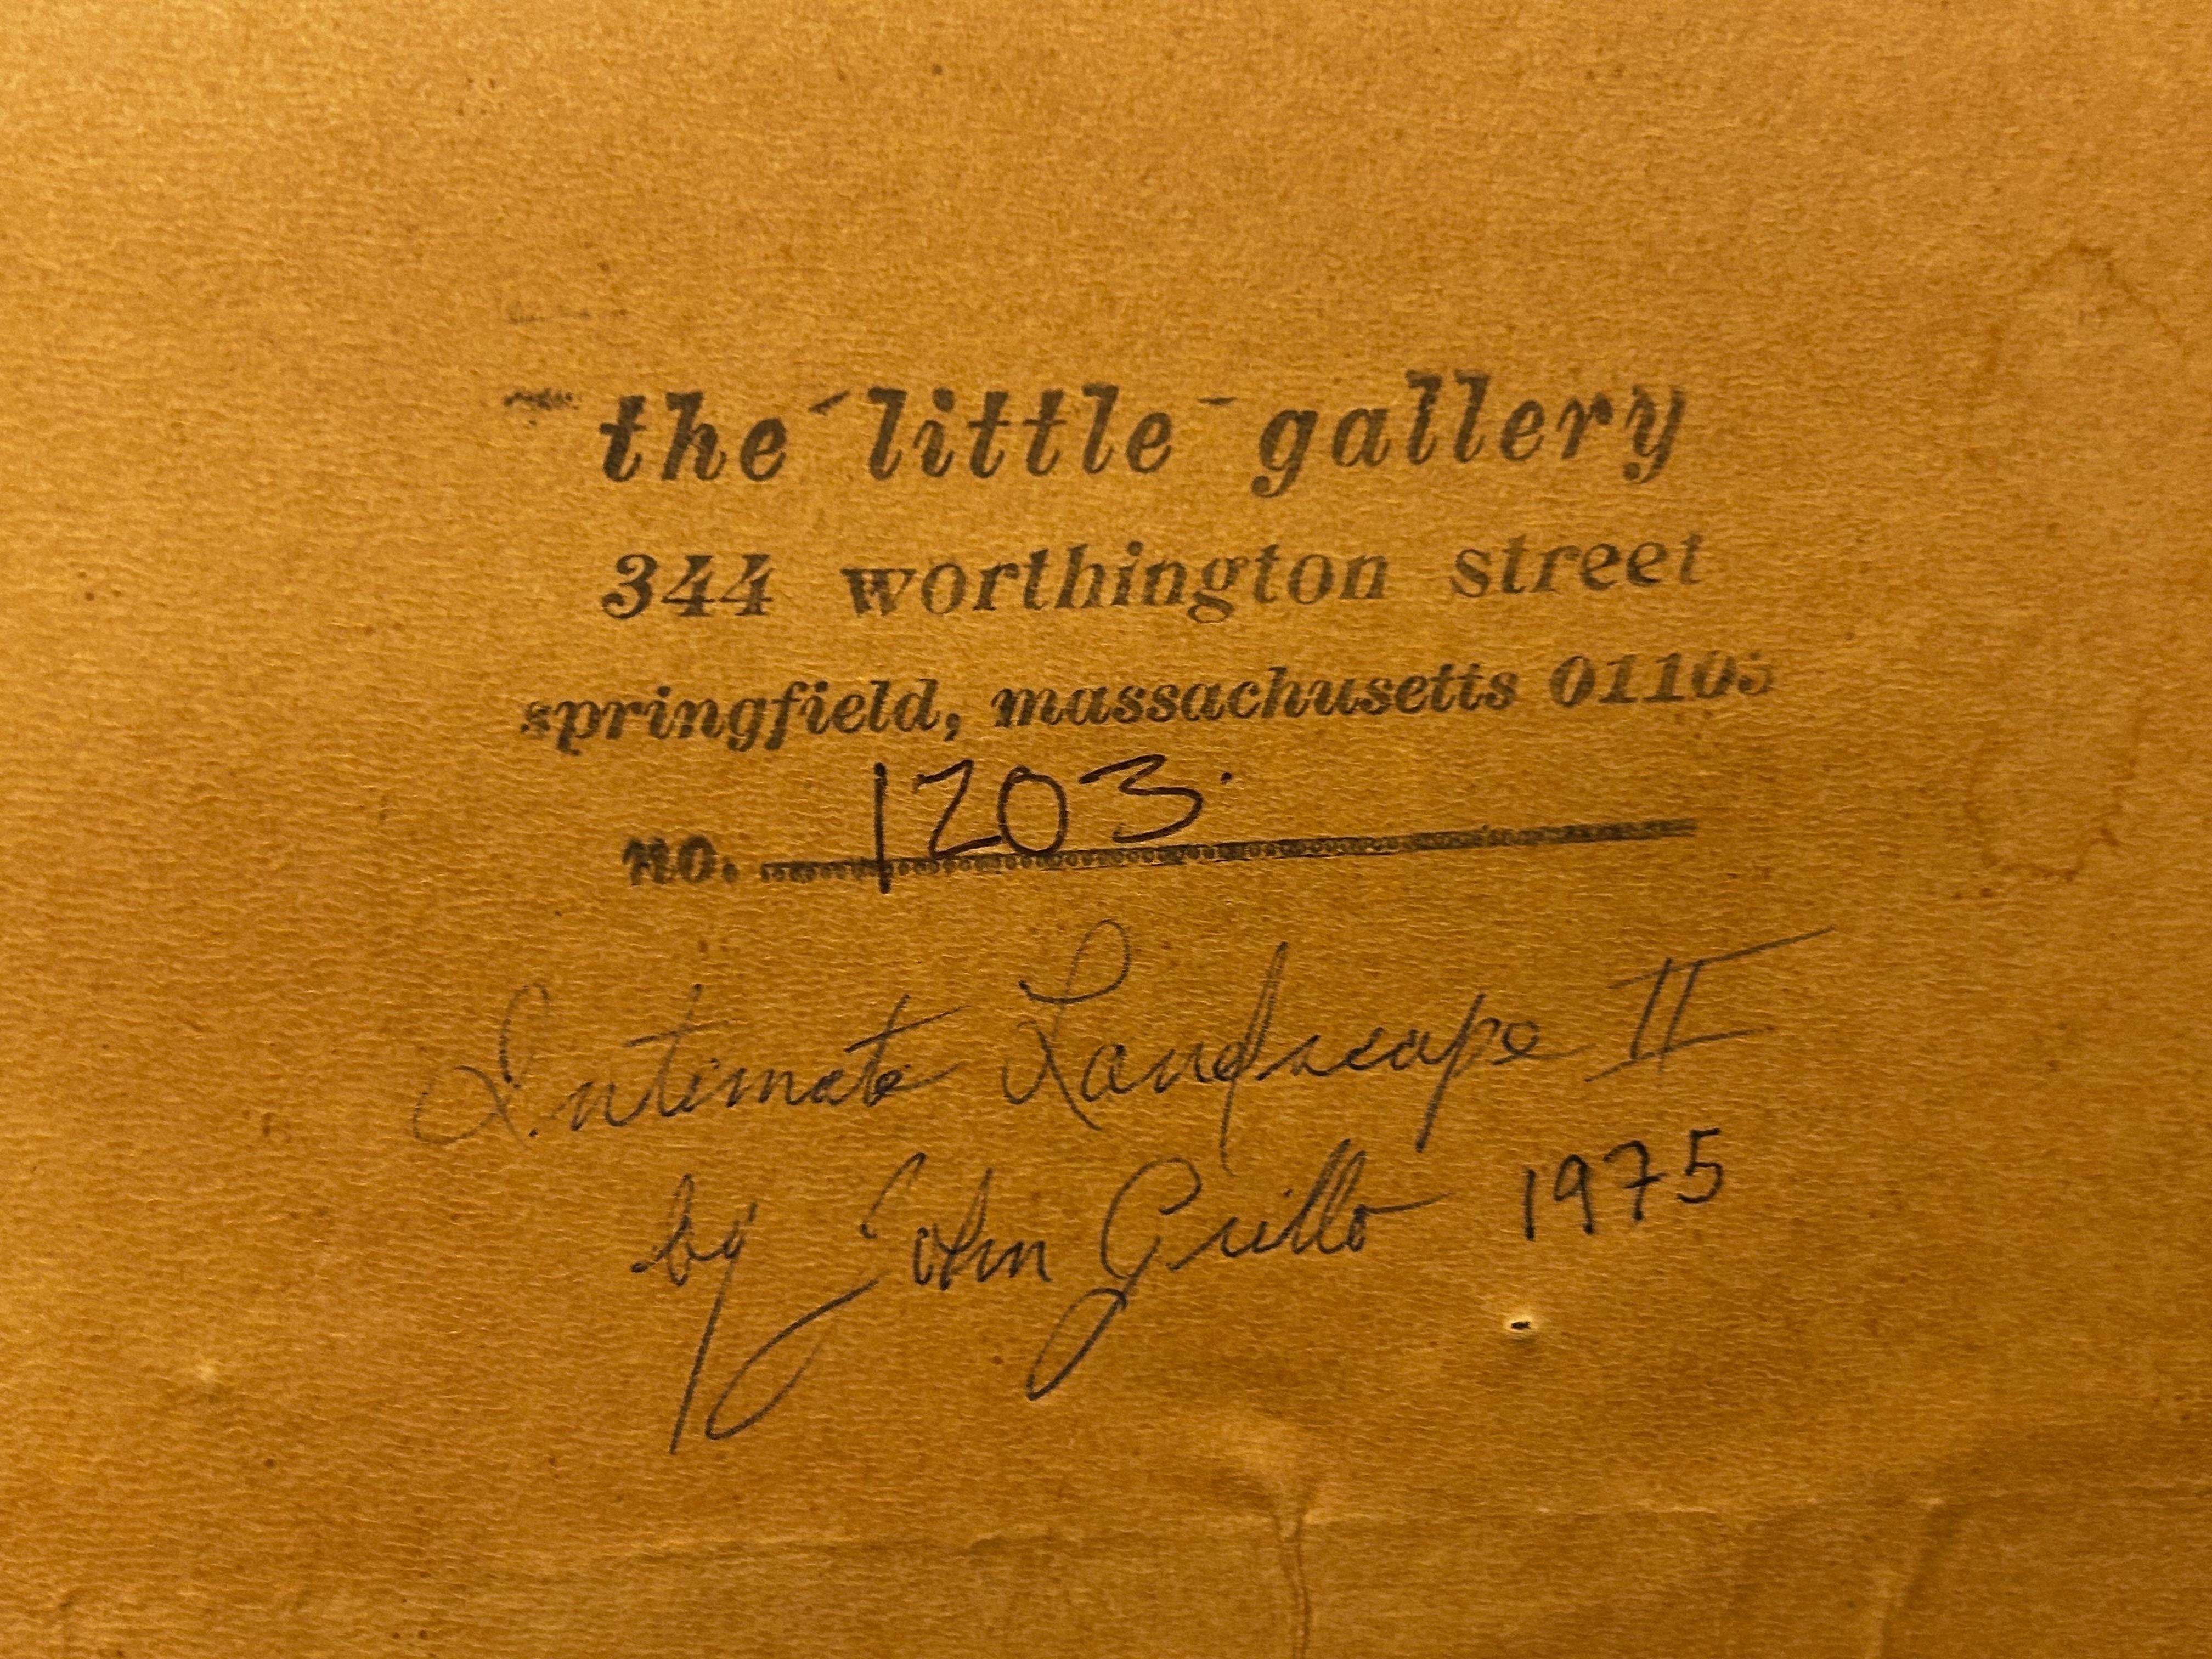 the little gallery
344 worthington street
springfield, massachusetts 01105
no. 1203
Intimate Landscape II
by John Grillo 1975